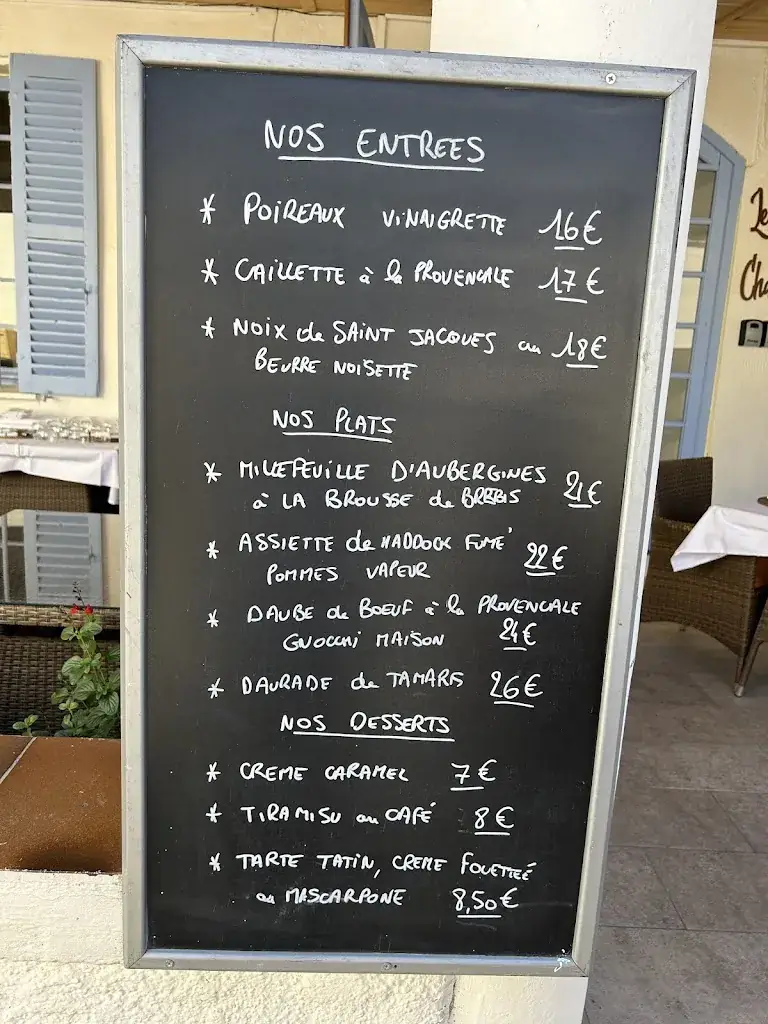 NOS ENTREES
* POIREAUX VINAIGRETTE 16€
* CAILLETTE à la PROVENCALE 17€
* NOIX de SAINT JACQUES au 18€
BEURRE NOISETTE
NOS PLATS
* MILLEFEUILLE D'AUBERGINES 21€
à LA BROUSSE de BREBIS
* ASSIETTE de HADDOCK FUMÉ 22€
POMMES VAPEUR
* DAUBE de BOEUF à la PROVENCALE
GNOCCHI MAISON 24€
* DAURADE de TAMARIS 26€
NOS DESSERTS
* CREME CARAMEL 7€
* TIRAMISU au CAFÉ 8€
* TARTE TATIN, CREME FOUETTEÉ
au MASCARPONE 8,50€
Le
Cha